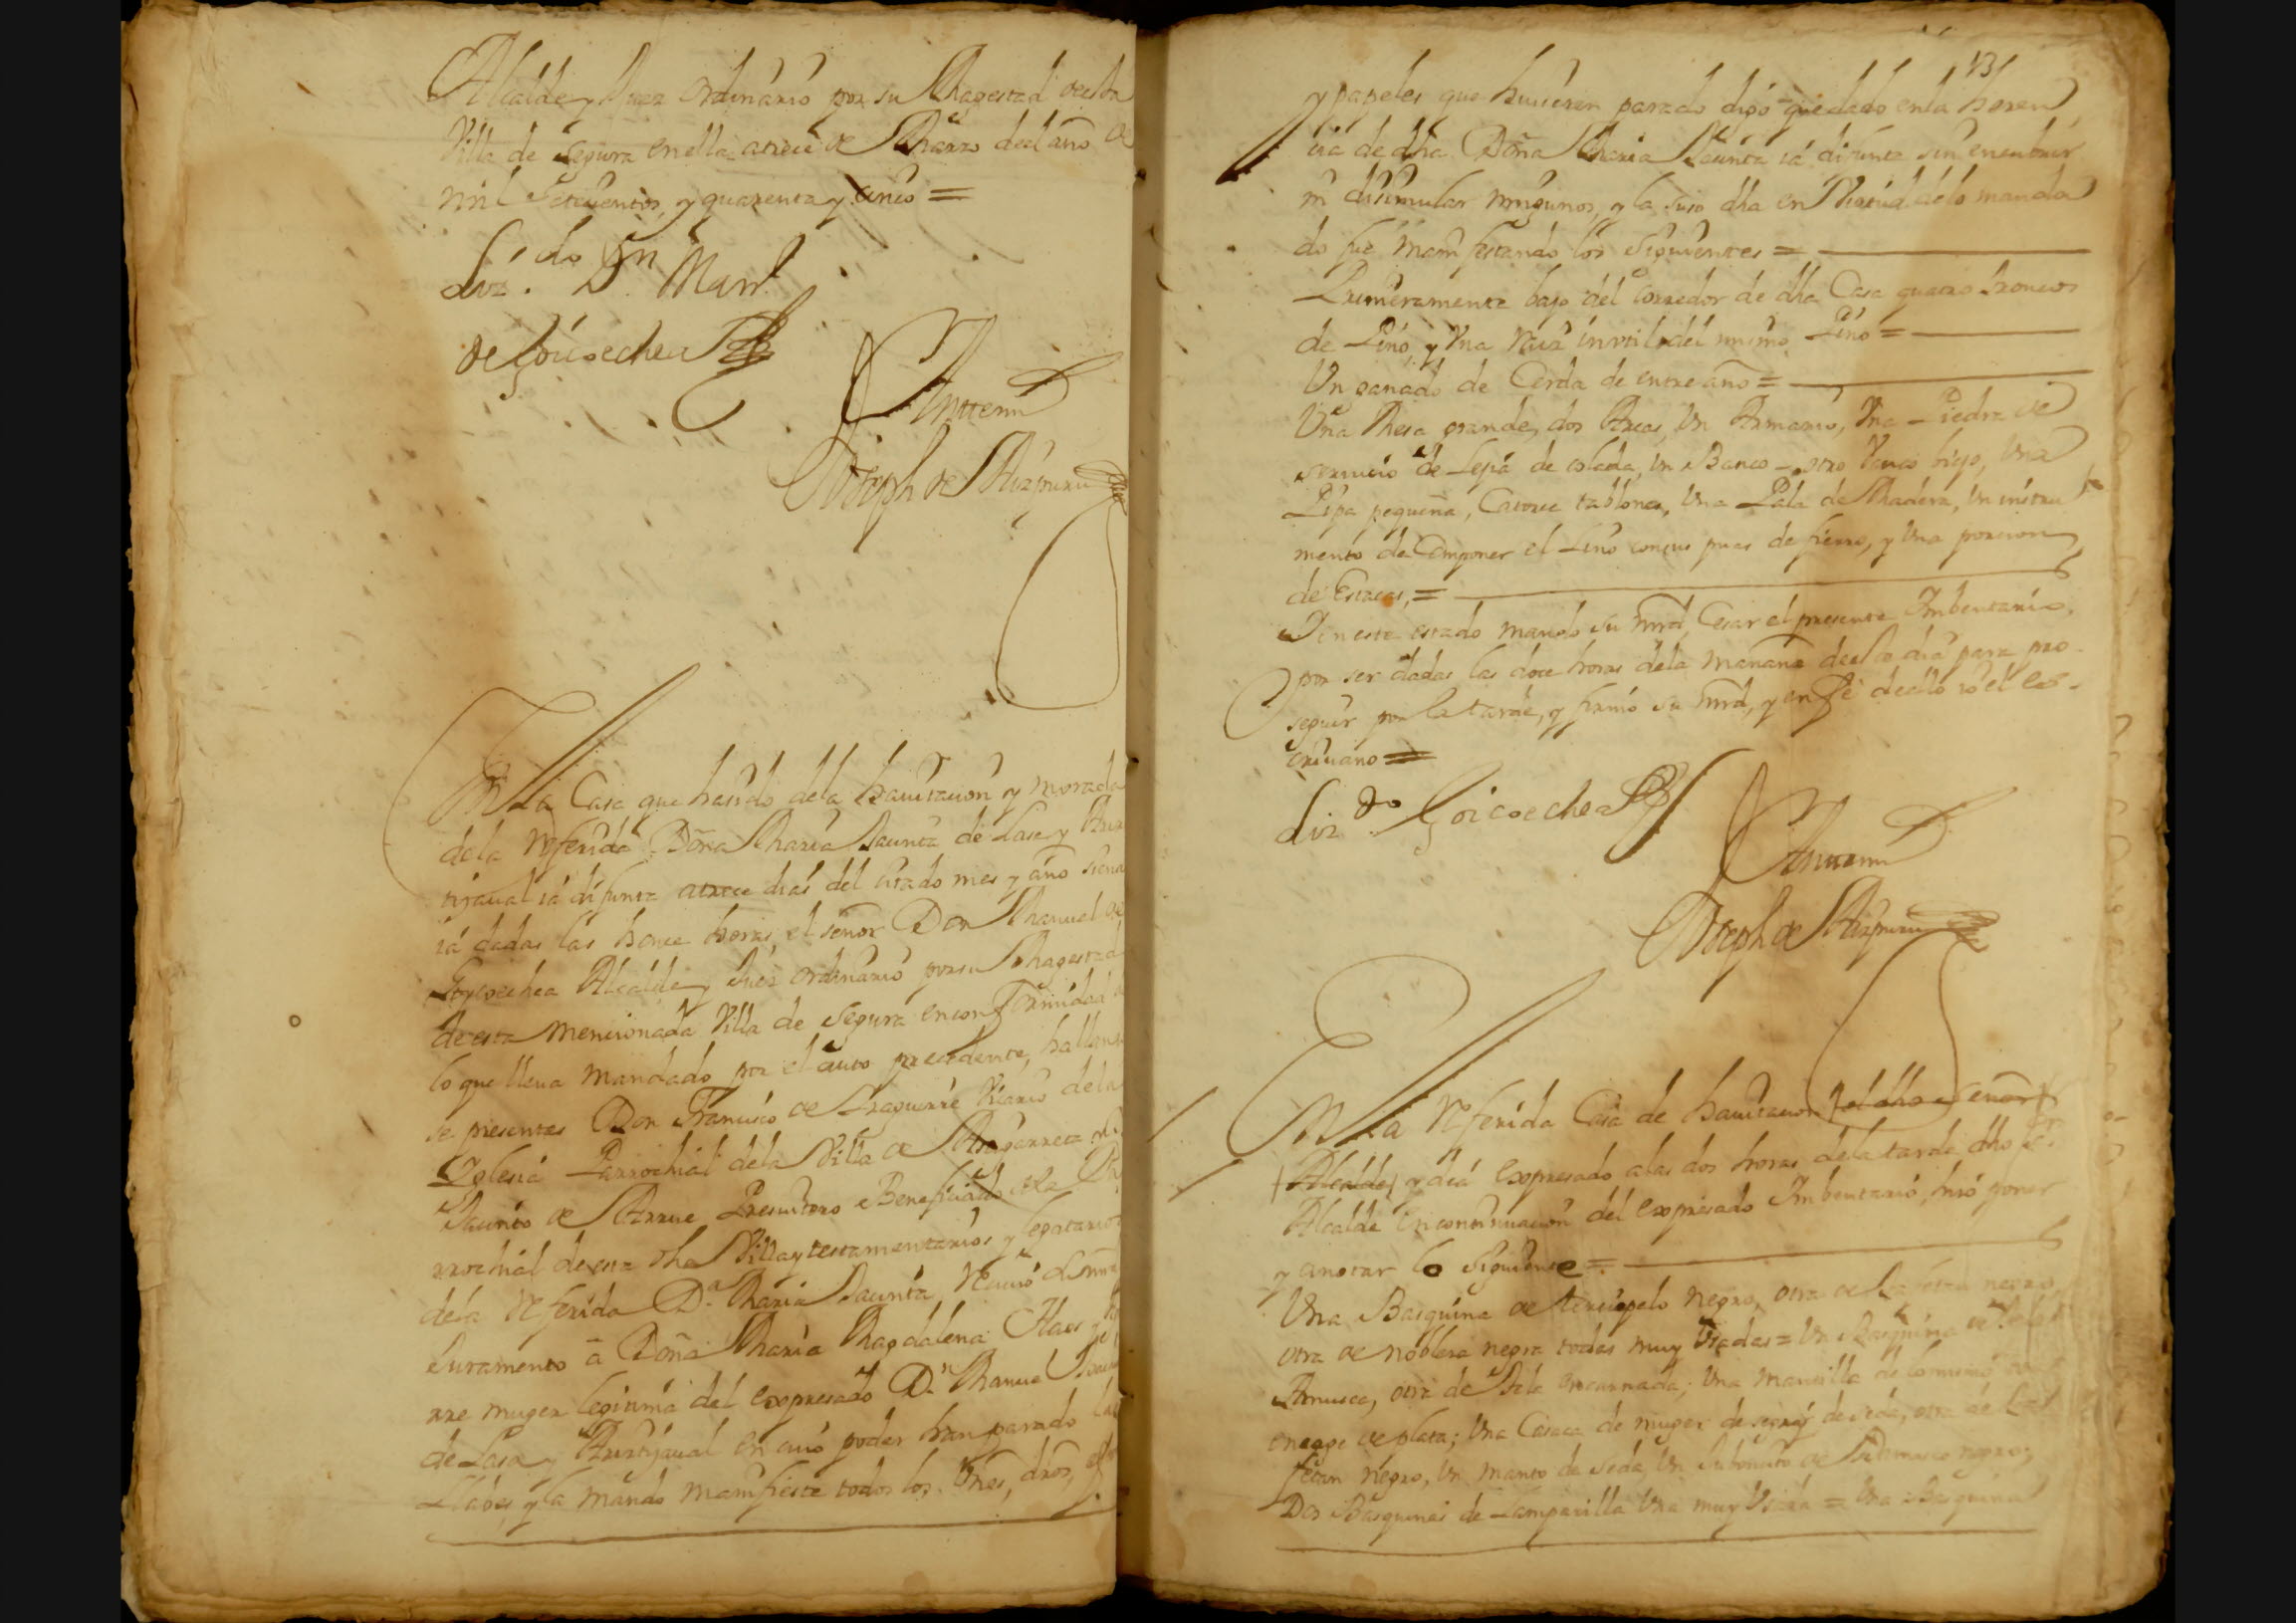 Alcalde y Juez ordinario por su Magestad de esta
Villa de Segura en ella a trece de Marzo de el año de
mil setecientos y quarenta y cinco =
Liz.do Dn Manl
de Goicoechea
Antemi
Joseph de Aizpuru
En la Casa que ha sido de la havitacion y morada
de la referida Doña Maria Jacinta de Lasa y
ia difunta a trece dias del citado mes y año siendo
ia dadas las honce horas, el señor Don Manuel de
Goycoechea Alcalde y Juez ordinario por su Magestad
de esta mencionada Villa de Segura en conformidad de
lo que lleva mandado por el auto precedente, hallando
se presentes Don Francisco de Yraguirre Vicario de la
Yglesia Parrochial de la Villa de
Jacinto de Arrue Presvitero Beneficiado de la Pa
rrochial de esta dha Villa y testamentarios y legatarios
de la referida D.a Maria Jacinta, recivió
Juramento â Doña Maria Magdalena
rre muger legitima del expresado D.n Manuel
de Lasa y en cuio poder han parado las
Llabes, y la mandó manifieste todos los Vnes, dros,
131
y papeles que huvieren parado digo quedado en la heren
cia de dha Doña Maria Jacinta iá difunta sin encubrir
ni disimular ningunos, y la suso dha en Virtud de lo manda
do fue manifestando los siguientes =
Primeramente bajo del corredor de dha Casa quatro troncos
de Pino, y Vna raiz inutil del mismo Pino =
Vn ganado de Cerda de entreaño =
Vna Mesa grande, dos Arcas, Vn Armario, Vna Piedra de
servicio de Lejia de colada, vn Banco, otro Vanco biejo, Vna
Pipa pequeña, Catorce tablones, Vna Pala de Madera, Vn instru
mento de Componer el Lino con sus puas de fierro, y Vna porcion
de Estacas, =
Y en este estado mandó su mrd Cesar el presente Imbentario,
por ser dadas las doce horas de la mañana de el dia para pro
seguir por la tarde, y firmó su mrd, y en fé de ello io el es
crivano =
Liz.do Goicoechea
Antemi
Joseph de Aizpuru
En la referida Casa de havitacion el dho señor
Alcalde y dia expresado a las dos horas de la tarde dho Sr
Alcalde en continuacion del expresado Imbentario, hizo poner
y anotar lo siguiente =
Vna Basquiña de terciopelo negro, otra de tafetan negro,
otra de nobleza negra todas muy Vsadas = Vn Basquiña de
otra de Tela encarnada; Vna mantilla de lo mismo con
encage de plata; Vna Casaca de muger de seda, otra de tafe
fetan negro, Vn manto de seda, Vn Juboncito de Damasco negro;
Dos Basquiñas de Lamparilla Vna muy Vsada = Vna Basquiña